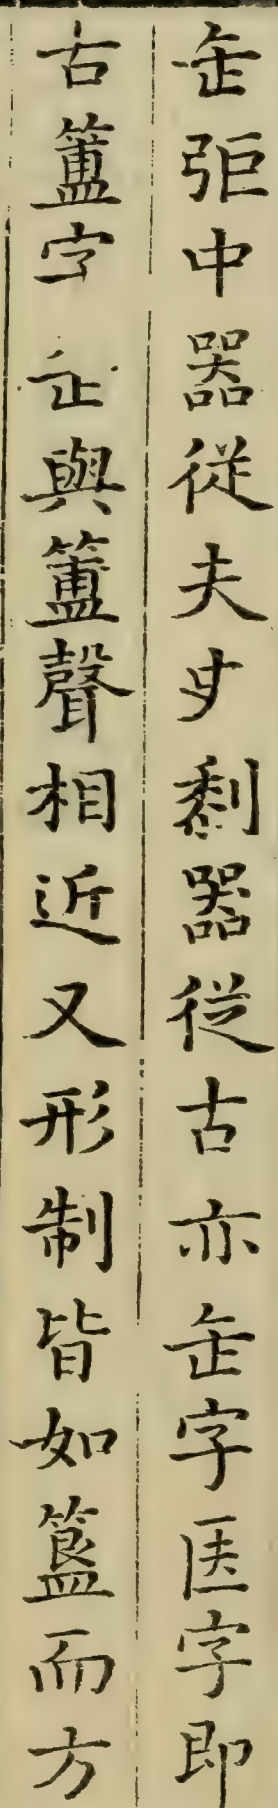 𦈢弡中器從夫史剩器從古亦𦈢字匩字即
古簠字𦈢與簠聲相近又形制皆如簋而方